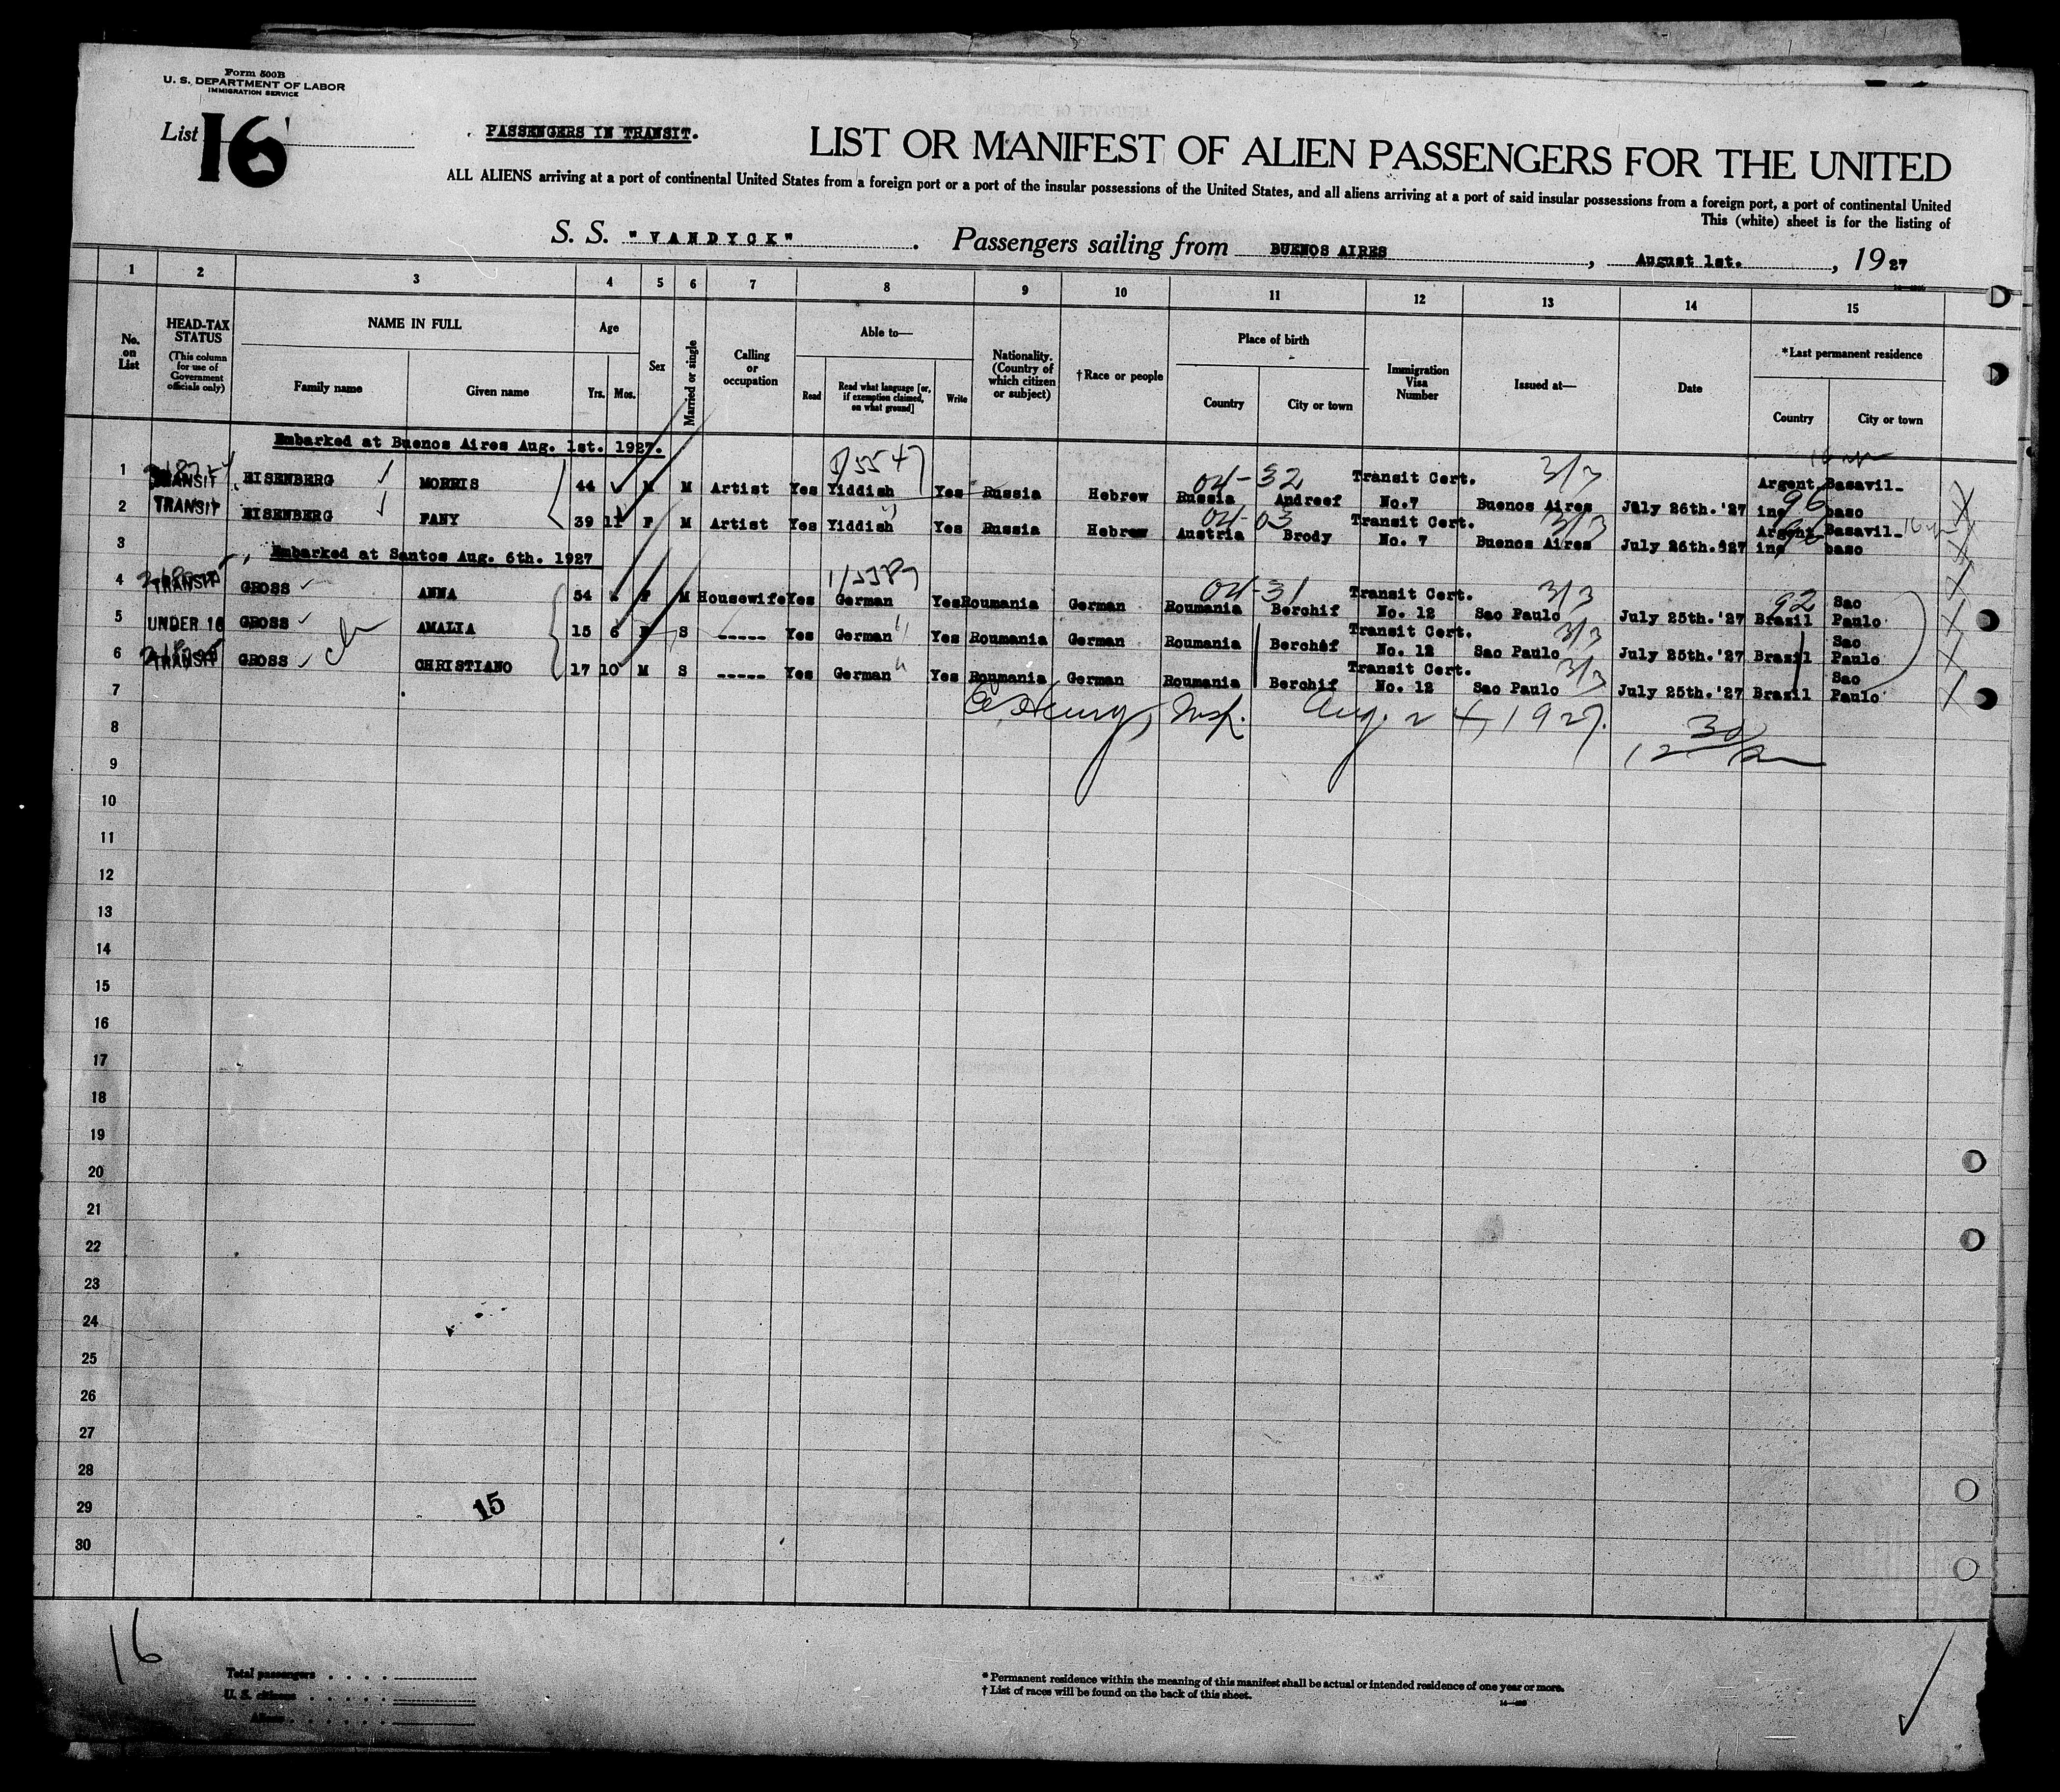 Form 500B
U. S. DEPARTMENT OF LABOR
IMMIGRATION SERVICE
List 16
PASSENGERS IN TRANSIT.
LIST OR MANIFEST OF ALIEN PASSENGERS FOR THE UNITED
ALL ALIENS arriving at a port of continental United States from a foreign port or a port of the insular possessions of the United States, and all aliens arriving at a port of said insular possessions from a foreign port, a port of continental United
This (white) sheet is for the listing of
S. S. "VANDYCK". Passengers sailing from BUENOS AIRES, August 1st., 1927
1 2 3 4 5 6 7 8 9 10 11 12 13 14 15
No. on List
HEAD-TAX STATUS (This column for use of Government officials only)
NAME IN FULL
Family name
Given name
Age
Yrs. Mos.
Sex
Married or single
Calling or occupation
Able to—
Read
Read what language [or, if exemption claimed, on what ground]
Write
Nationality. (Country of which citizen or subject)
†Race or people
Place of birth
Country
City or town
Immigration Visa Number
Issued at—
Date
*Last permanent residence
Country
City or town
Embarked at Buenos Aires Aug. 1st. 1927.
1 TRANSIT EISENBERG MORRIS 44 M M Artist Yes Yiddish Yes Russia Hebrew Russia Andreef Transit Cert. No.7 Buenos Aires July 26th.'27 Argentine Basavilbaso
04-32 3/3 96
2 TRANSIT EISENBERG FANY 39 11 F M Artist Yes Yiddish Yes Russia Hebrew Austria Brody Transit Cert. No. 7 Buenos Aires July 26th.'27 Argentine Basavilbaso
04-03 3/3
3 Embarked at Santos Aug. 6th. 1927
4 TRANSIT GROSS ANNA 54 F M Housewife Yes German Yes Roumania German Roumania Berchif Transit Cert. No. 12 Sao Paulo July 25th.'27 Brazil Sao Paulo
04-31 3/3 92
5 UNDER 16 GROSS AMALIA 15 6 F S ----- Yes German Yes Roumania German Roumania Berchif Transit Cert. No. 12 Sao Paulo 3/3 July 25th.'27 Brazil Sao Paulo
6 TRANSIT GROSS CHRISTIANO 17 10 M S ----- Yes German Yes Roumania German Roumania Berchif Transit Cert. No. 12 Sao Paulo 3/3 July 25th.'27 Brazil Sao Paulo
7
Insp. Aug. 24, 1927.
8
12 30
9
10
11
12
13
14
15
16
17
18
19
20
21
22
23
24
25
26
27
28
29
15
30
16
Total passengers
U. S. citizens
Aliens
* Permanent residence within the meaning of this manifest shall be actual or intended residence of one year or more.
† List of races will be found on the back of this sheet.